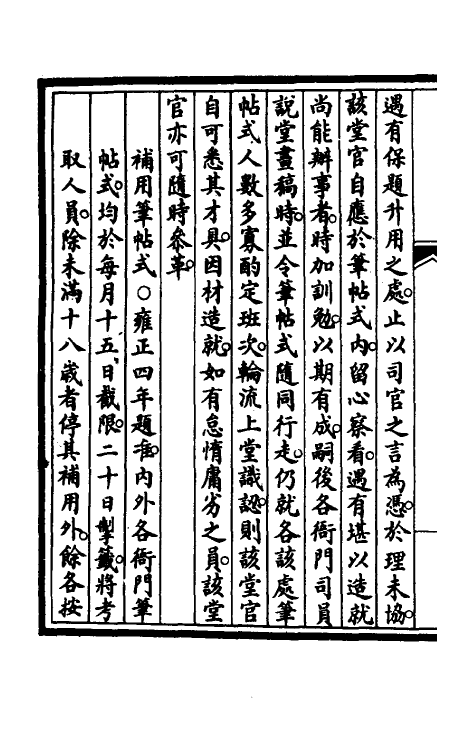 遇有保題升用之處。止以司官之言為憑。於理未協。
該堂官自應於筆帖式內。留心察看。遇有堪以造就
尚能辦事者。時加訓勉。以期有成。嗣後各衙門司員
說堂畫稿時。並令筆帖式隨同行走。仍就各該處筆
帖式人數多寡。酌定班次。輪流上堂識認。則該堂官
自可悉其才具。因材造就。如有怠惰庸劣之員。該堂
官亦可隨時叅革。
補用筆帖式○雍正四年題准。內外各衙門筆
帖式。均於每月十五、日截限。二十日掣籤。將考
取人員。除未滿十八歲者停其補用外。餘各按